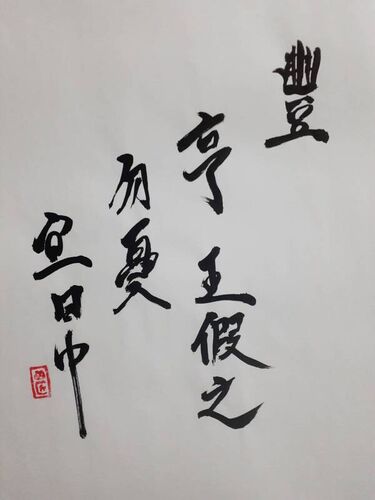 豐
亨王假之
勿憂
宜日中